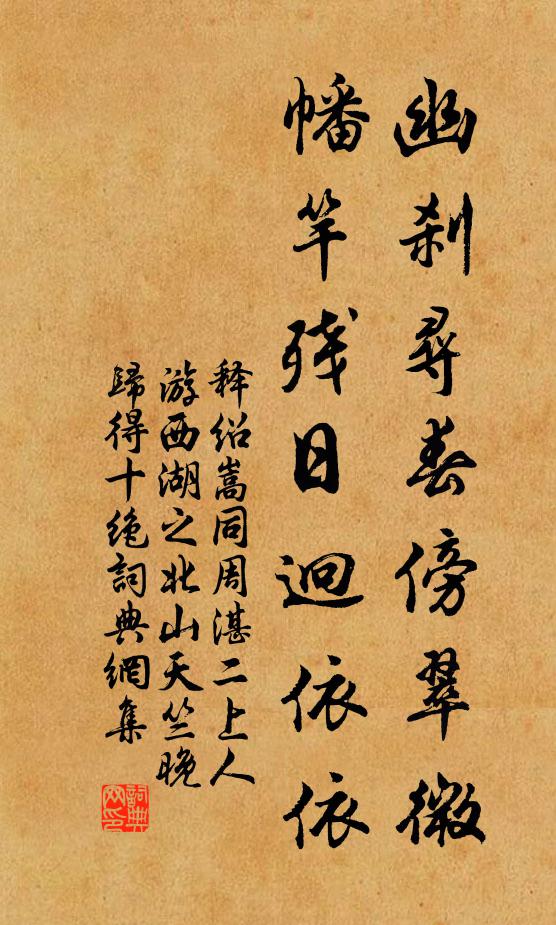 幽刹尋春傍翠微
幡竿残日迥依依
释绍嵩同周湛二上人
游西湖之北山天竺晚
歸得十绝詞典網集
詞典网印